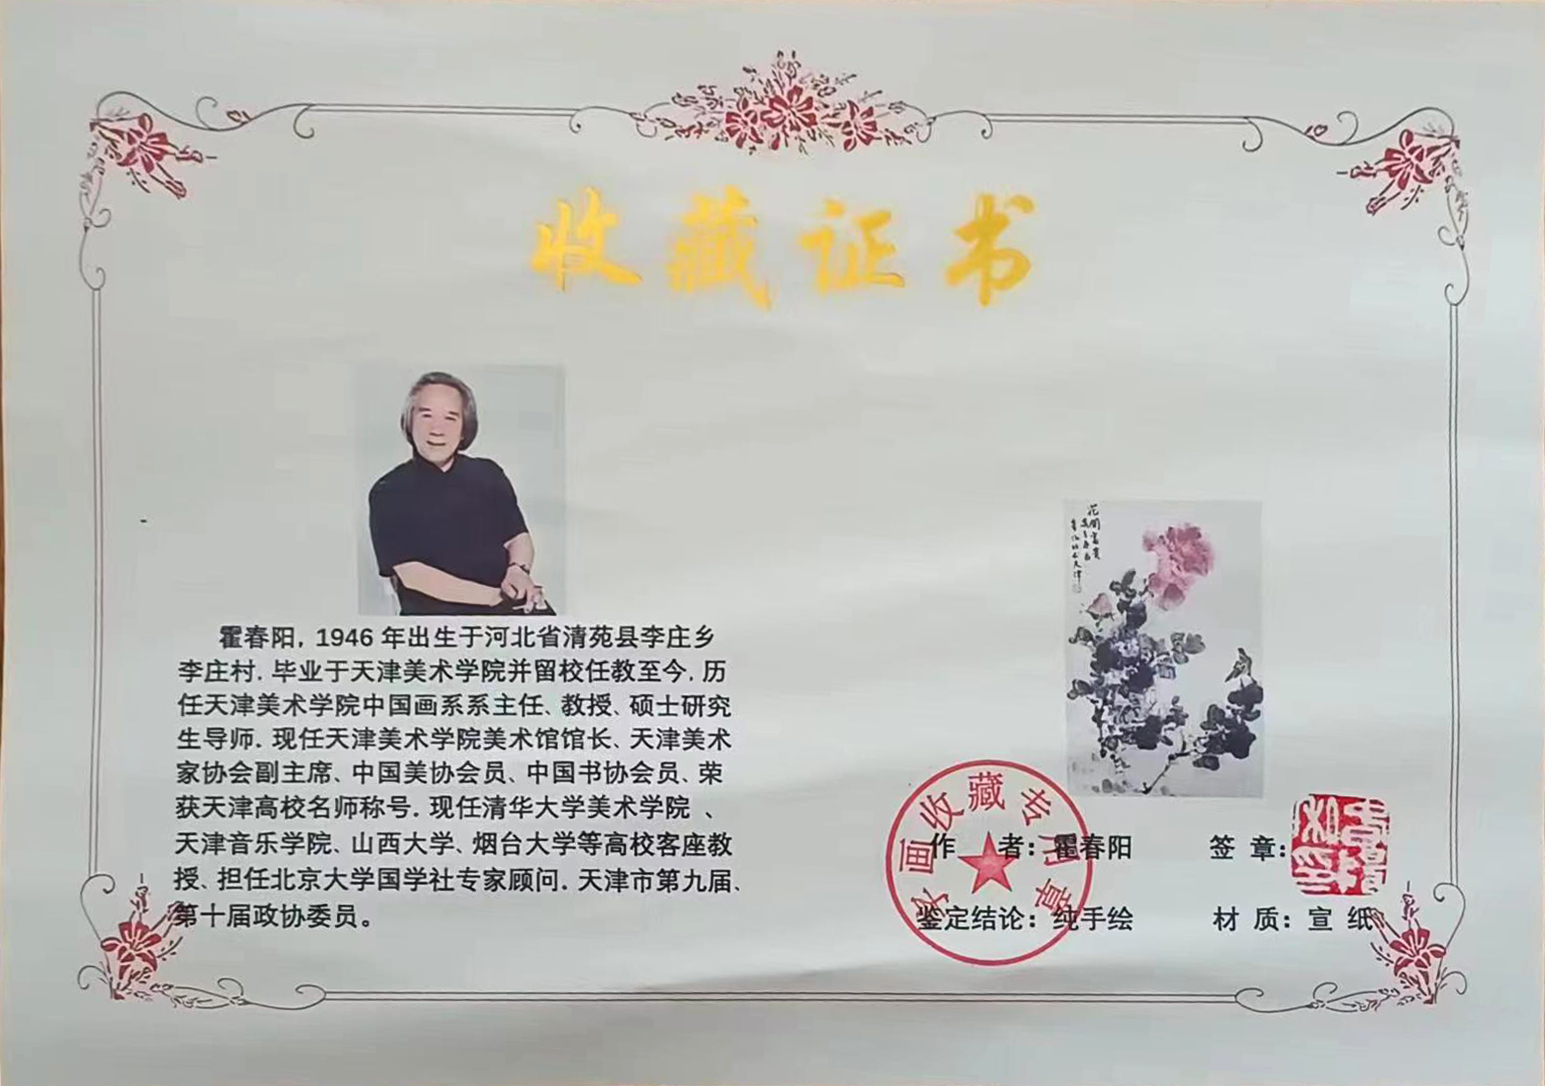 收藏证书
霍春阳，1946年出生于河北省清苑县李庄乡
李庄村．毕业于天津美术学院并留校任教至今．历
任天津美术学院中国画系系主任、教授、硕士研究
生导师．现任天津美术学院美术馆馆长、天津美术
家协会副主席、中国美协会员、中国书协会员、荣
获天津高校名师称号．现任清华大学美术学院 、
天津音乐学院、山西大学、烟台大学等高校客座教
授、担任北京大学国学社专家顾问．天津市第九届、
第十届政协委员。
花开富贵
作 者：霍春阳
签 章：
鉴定结论：纯手绘
材 质：宣 纸
字画收藏专用章